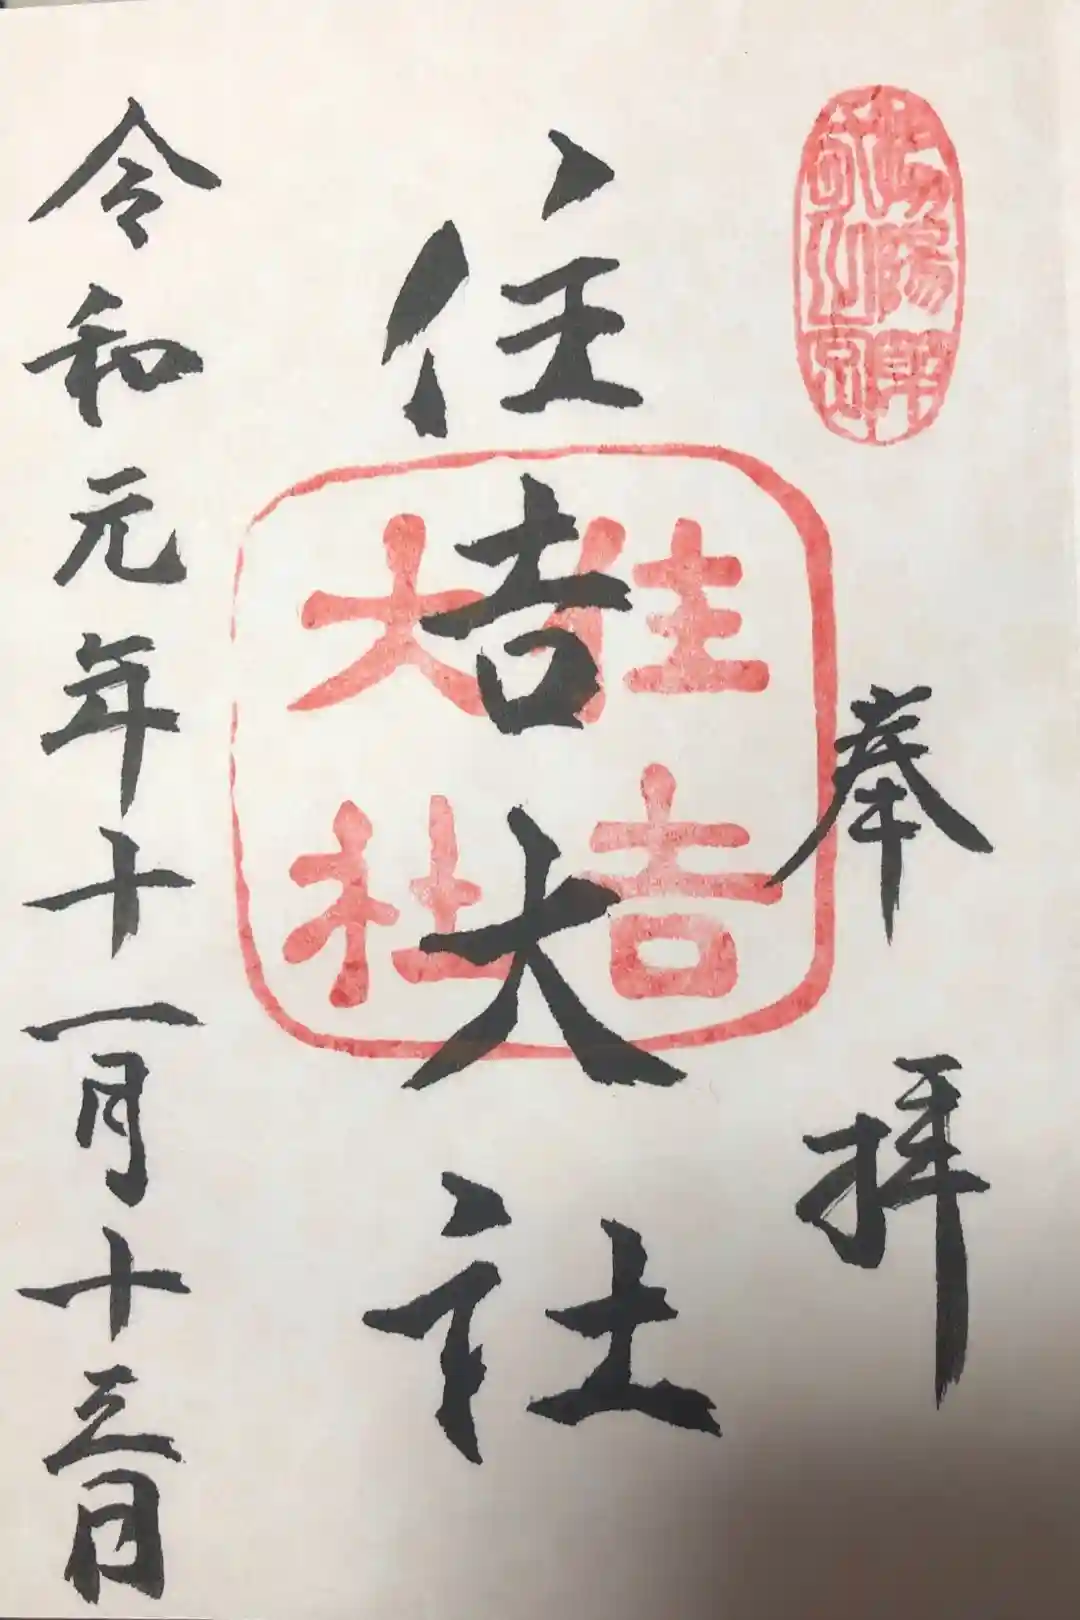 奉拝
住吉大社
住吉
大社
令和元年十一月十三日